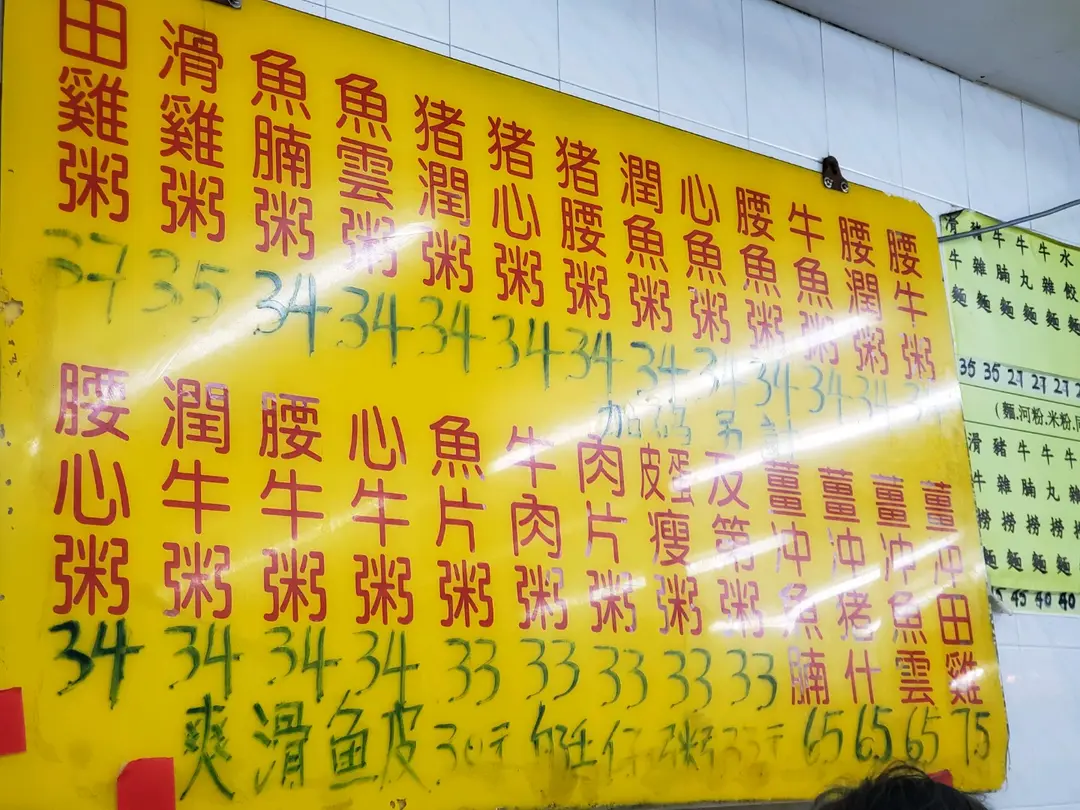 田雞粥 37
滑雞粥 35
魚腩粥 34
魚雲粥 34
猪潤粥 34
猪心粥 34
猪腰粥 34
潤魚粥 34
心魚粥 34
腰魚粥 34
牛魚粥 34
腰潤粥 34
腰牛粥 34
加碼另計
腰心粥 34
潤牛粥 34
腰牛粥 34
心牛粥 34
魚片粥 33
牛肉粥 33
肉片粥 33
皮蛋瘦粥 33
及第粥 33
薑冲魚腩 65
薑冲猪什 65
薑冲魚雲 65
薑冲田雞 75
爽滑鱼皮 30元
仔粥 33元
滑牛麵 35
豬雜麵 35
牛腩麵 27
牛丸麵 27
牛雜麵 27
水餃麵
(麵.河粉.米粉.
滑牛捞麵 45
豬雜捞麵 45
牛腩捞麵 40
牛丸捞麵 40